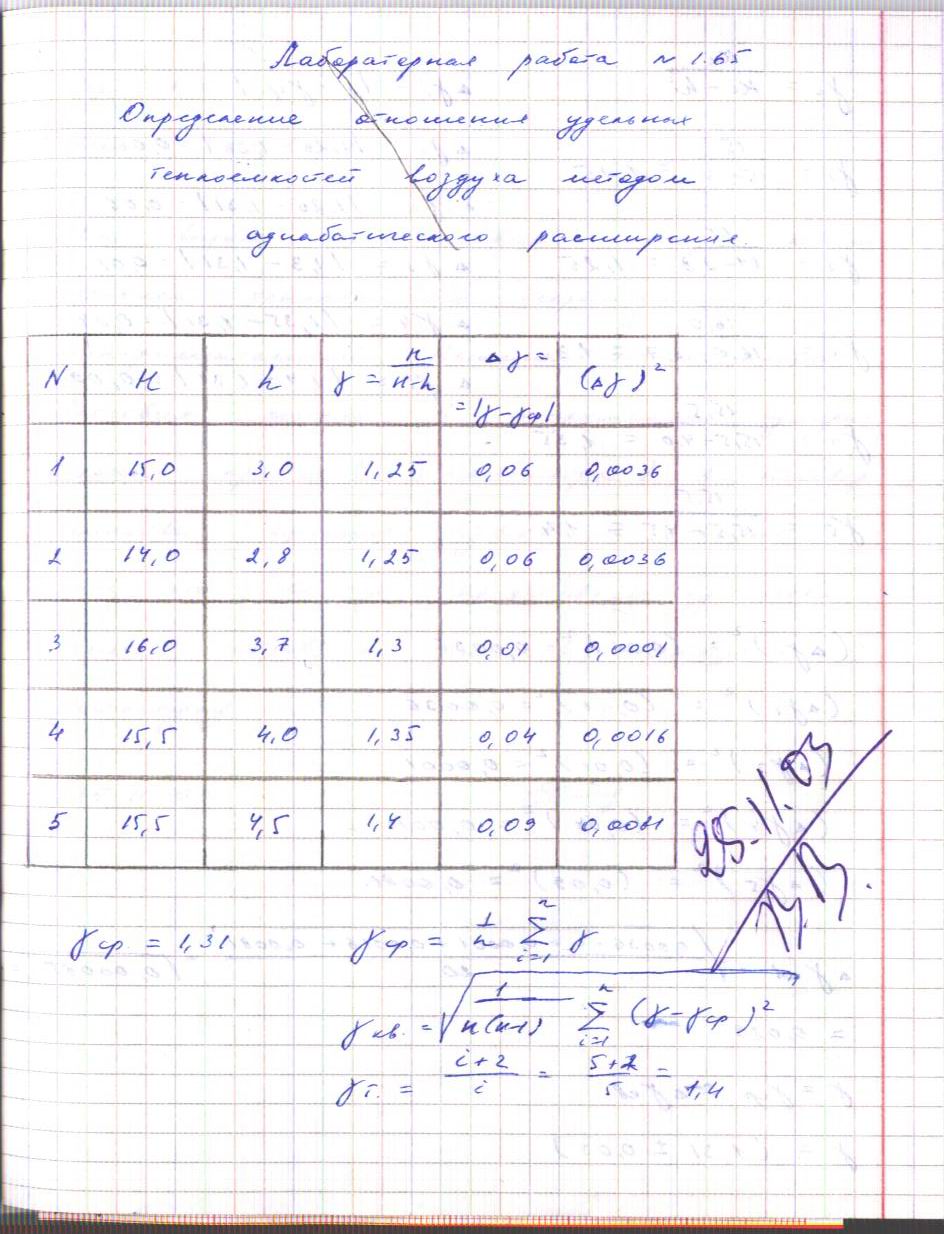 Лабораторная работа № 1.65
Определение отношения удельных
теплоёмкостей воздуха методом
адиабатического расширения.
N H h γ = H/(H-h) Δγ = |γ-γср| (Δγ)²
1 15,0 3,0 1,25 0,06 0,0036
2 14,0 2,8 1,25 0,06 0,0036
3 16,0 3,7 1,3 0,01 0,0001
4 15,5 4,0 1,35 0,04 0,0016
5 15,5 4,5 1,4 0,09 0,0081
25.11.03
γср = 1,31 γср = 1/n ∑ⁿᵢ₌₁ γ
γкв. = √(1/(n(n-1)) ∑ⁿᵢ₌₁ (γ-γср)²)
γт. = (i+2)/i = (5+2)/5 = 1,4